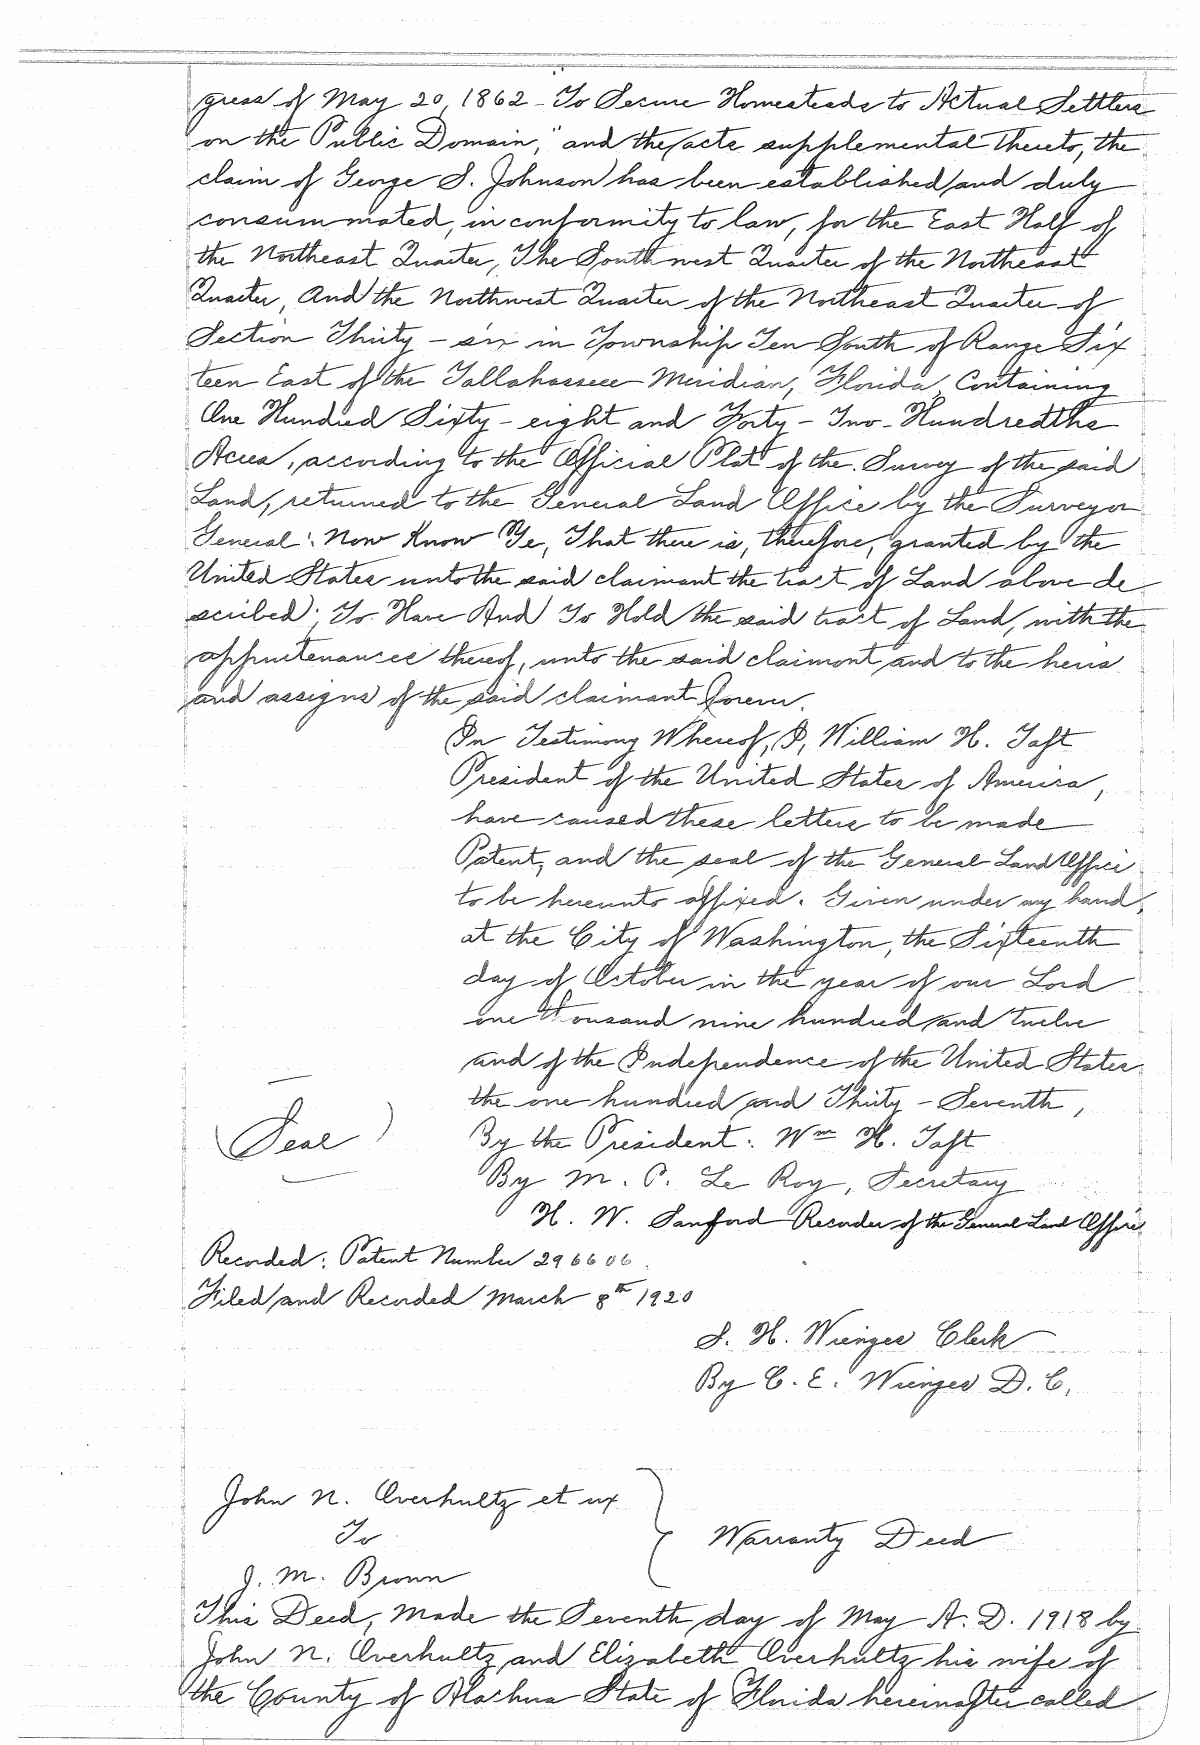 gress of May 20, 1862 - To Secure Homesteads to Actual Settlers
on the Public Domain," and the acts supplemental thereto, the
claim of George S. Johnson has been established and duly
consummated, in conformity to law, for the East Half of
the Northeast Quarter, The Southwest Quarter of the Northeast
Quarter, And the Northwest Quarter of the Northeast Quarter of
Section Thirty - six in Township Ten South of Range Six
teen East of the Tallahassee Meridian, Florida, Containing
One Hundred Sixty - eight and Forty - Two - Hundredths
Acres, according to the Official Plat of the Survey of the said
Land, returned to the General Land Office by the Surveyor
General: Now Know Ye, That there is, therefore, granted by the
United States unto the said claimant the tract of Land above de
scribed; To Have And To Hold the said tract of Land, with the
appurtenances thereof, unto the said claimant and to the heirs
and assigns of the said claimant forever.
In Testimony Whereof, I, William H. Taft
President of the United States of America,
have caused these letters to be made
Patent, and the seal of the General Land Office
to be hereunto affixed. Given under my hand,
at the City of Washington, the Sixteenth
day of October in the year of our Lord
one thousand nine hundred and twelve
and of the Independence of the United States
the one hundred and Thirty - Seventh,
(Seal) By the President: Wm H. Taft
By M. P. Le Roy, Secretary
H. W. Sanford Recorder of the General Land Office
Recorded: Patent Number 296606.
Filed and Recorded March 8th 1920
S. H. Wienges Clerk
By C. E. Wienges D. C.
John N. Overhultz et ux
To
Warranty Deed
J. M. Brown
This Deed, Made the Seventh day of May A. D. 1918 by
John N. Overhultz and Elizabeth Overhultz his wife of
the County of Alachua State of Florida hereinafter called